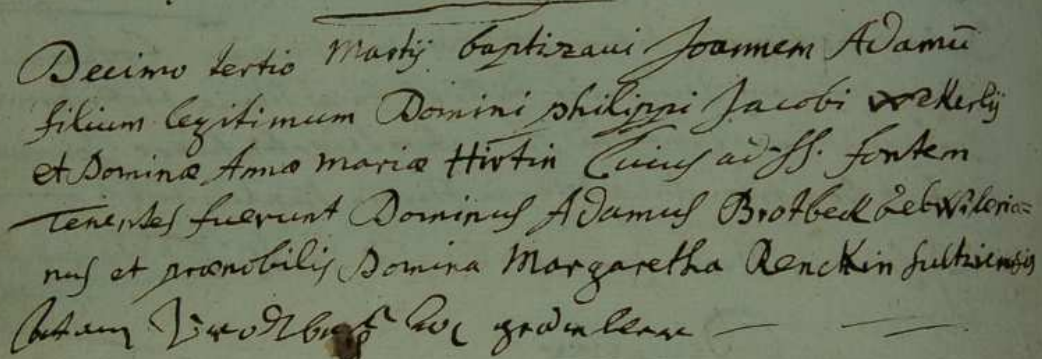 Decimo tertio Martij baptizaui Joannem Adamū
filium legitimum Domini philippi Jacobi
et Dominæ Annæ Mariæ Hirtin Cuius ad SS. fontem
Tenentes fuerunt Dominus Adamus Brotbeck Gebwileria=
nus et prænobilis Domina Margaretha Renckin Sultziensis